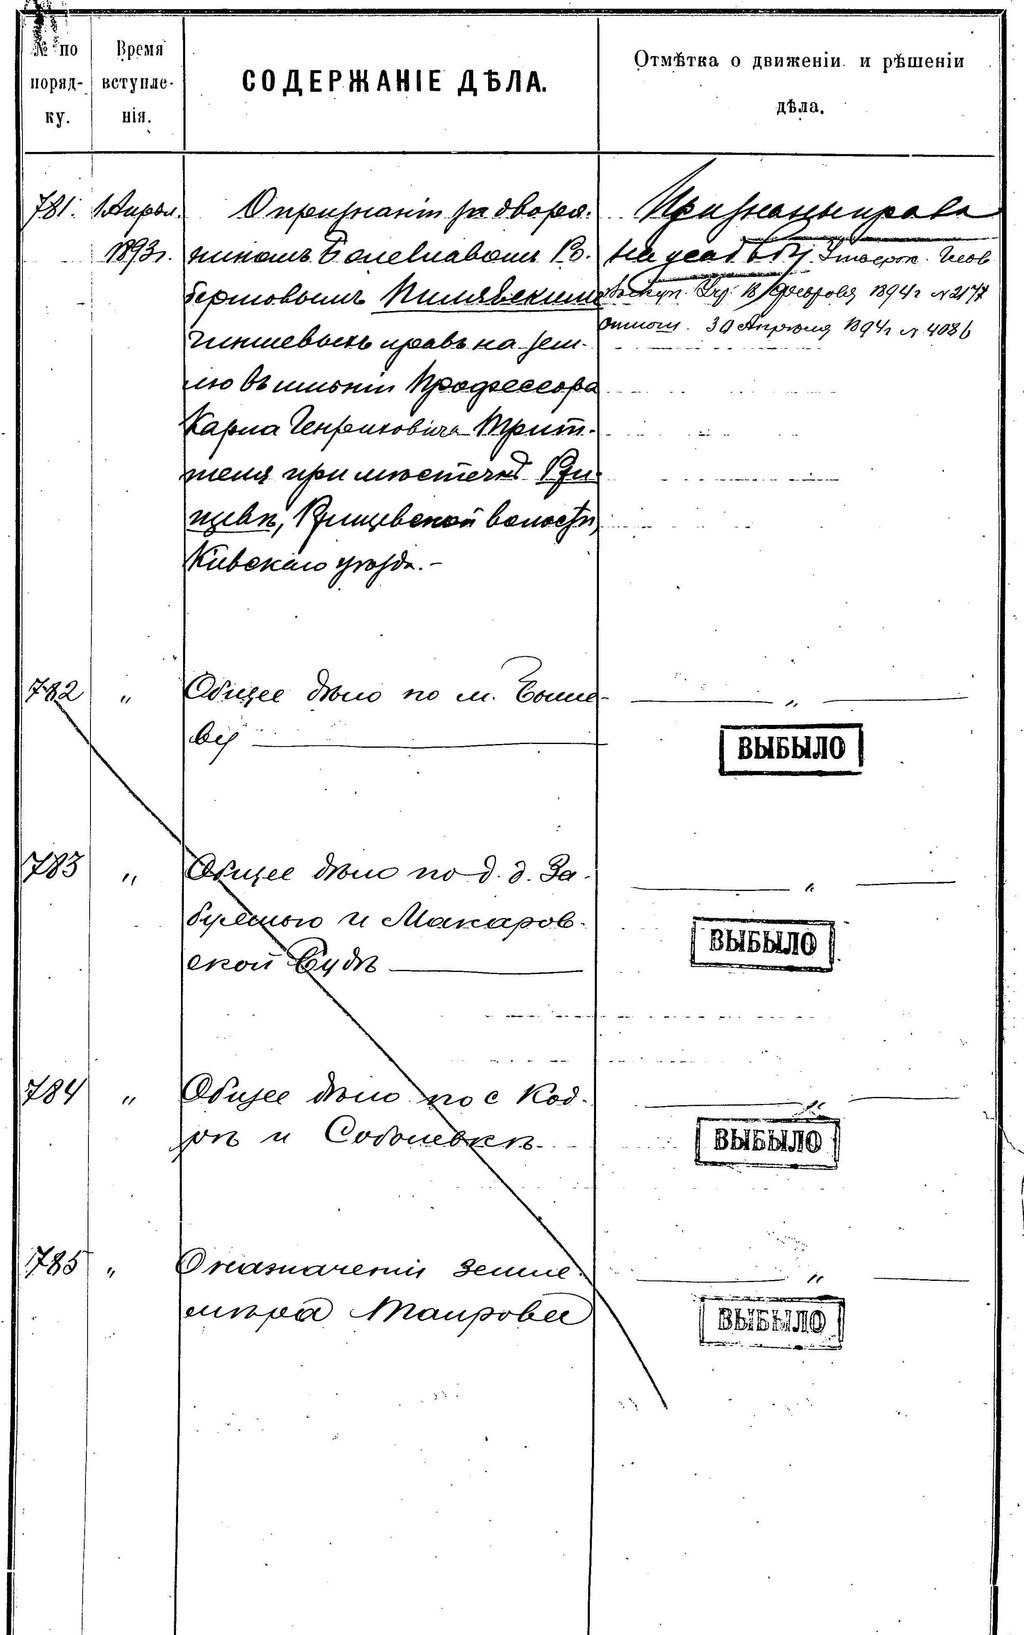 № по поряд- ку.
Время вступле- нія.
СОДЕРЖАНІЕ ДѢЛА.
Отмѣтка о движеніи и рѣшеніи дѣла.
781.
1 Апрѣл.
1893 г.
О признаніи за дворя-
ниномъ Болеславомъ Ро-
бертовымъ Пилявскимъ
чиншевыхъ правъ на зем-
лю въ имѣніи Профессора
Карла Генриховича Трит-
шеля при мѣстечкѣ Ржи-
щевѣ, Ржищевской волости,
Кіевскаго уѣзда.-
Признаны права
на усадьбу.
выкуп. Учр. 18 Февраля 1894 г. № 2177
30 Апрѣля 1894 г № 4086
782
"
Общее дѣло по м. Быше-
ву
"
ВЫБЫЛО
783
"
Общее дѣло по д. д. За-
буянью и Макаров-
ской Будѣ
"
ВЫБЫЛО
784
"
Общее дѣло по с Код-
рѣ и Соболевкѣ
"
ВЫБЫЛО
785
"
О назначеніи земле-
мѣра Таирова
"
ВЫБЫЛО